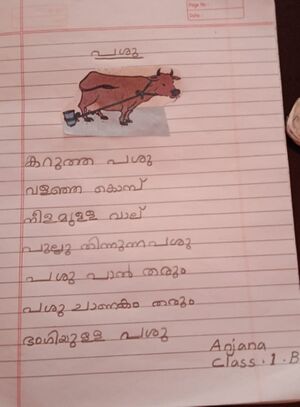 Page No :
Date :
പശു
കറുത്ത പശു
വളഞ്ഞ കൊമ്പ്
നീളമുള്ള വാല്
പുല്ലു തിന്നുന്ന പശു
പശു പാൽ തരും
പശു ചാണകം തരും
ഭംഗിയുള്ള പശു
Anjana
Class . 1 . B